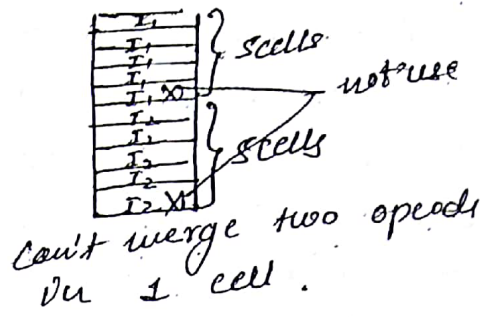 I₁
I₁
I₁
I₁
I₁
I₂
I₂
I₂
I₂
I₂
5 cells
not use
5 cells
Can't merge two opcode
in 1 cell.